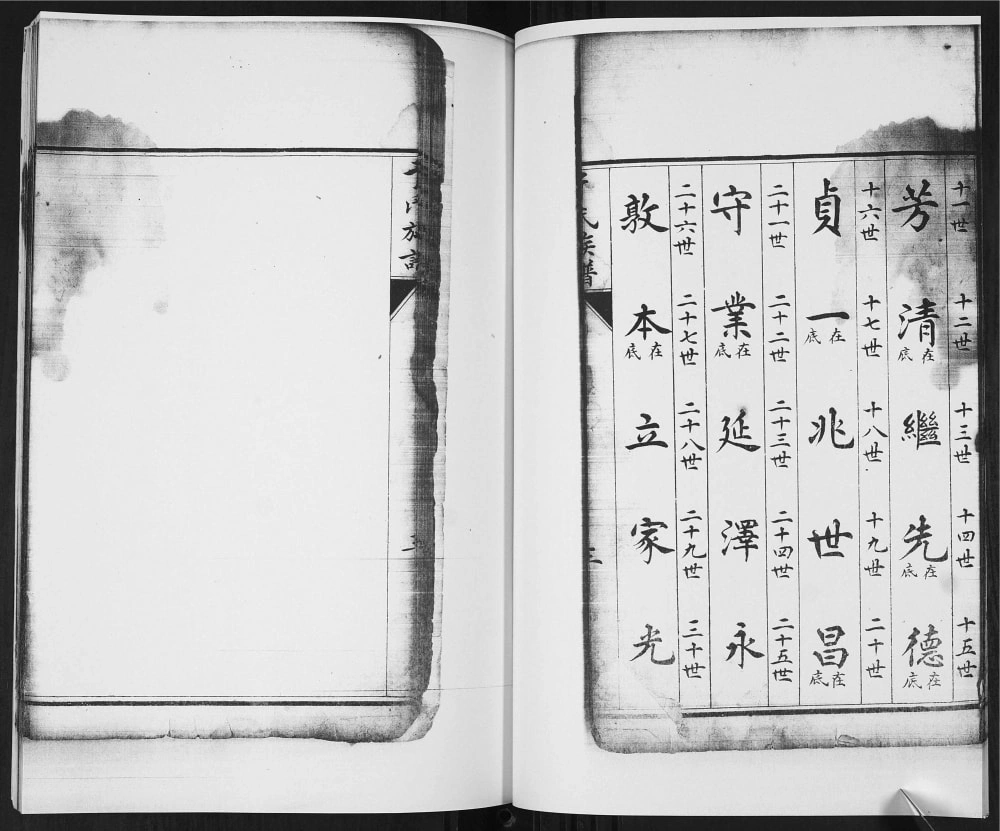 十一世 十二世 十三世 十四世 十五世
芳 清在底 繼 先在底 德在底
十六世 十七世 十八世 十九世 二十世
貞 一在底 兆 世 昌在底
二十一世 二十二世 二十三世 二十四世 二十五世
守 業在底 延 澤 永
二十六世 二十七世 二十八世 二十九世 三十世
敦 本在底 立 家 光
氏族譜
氏族譜